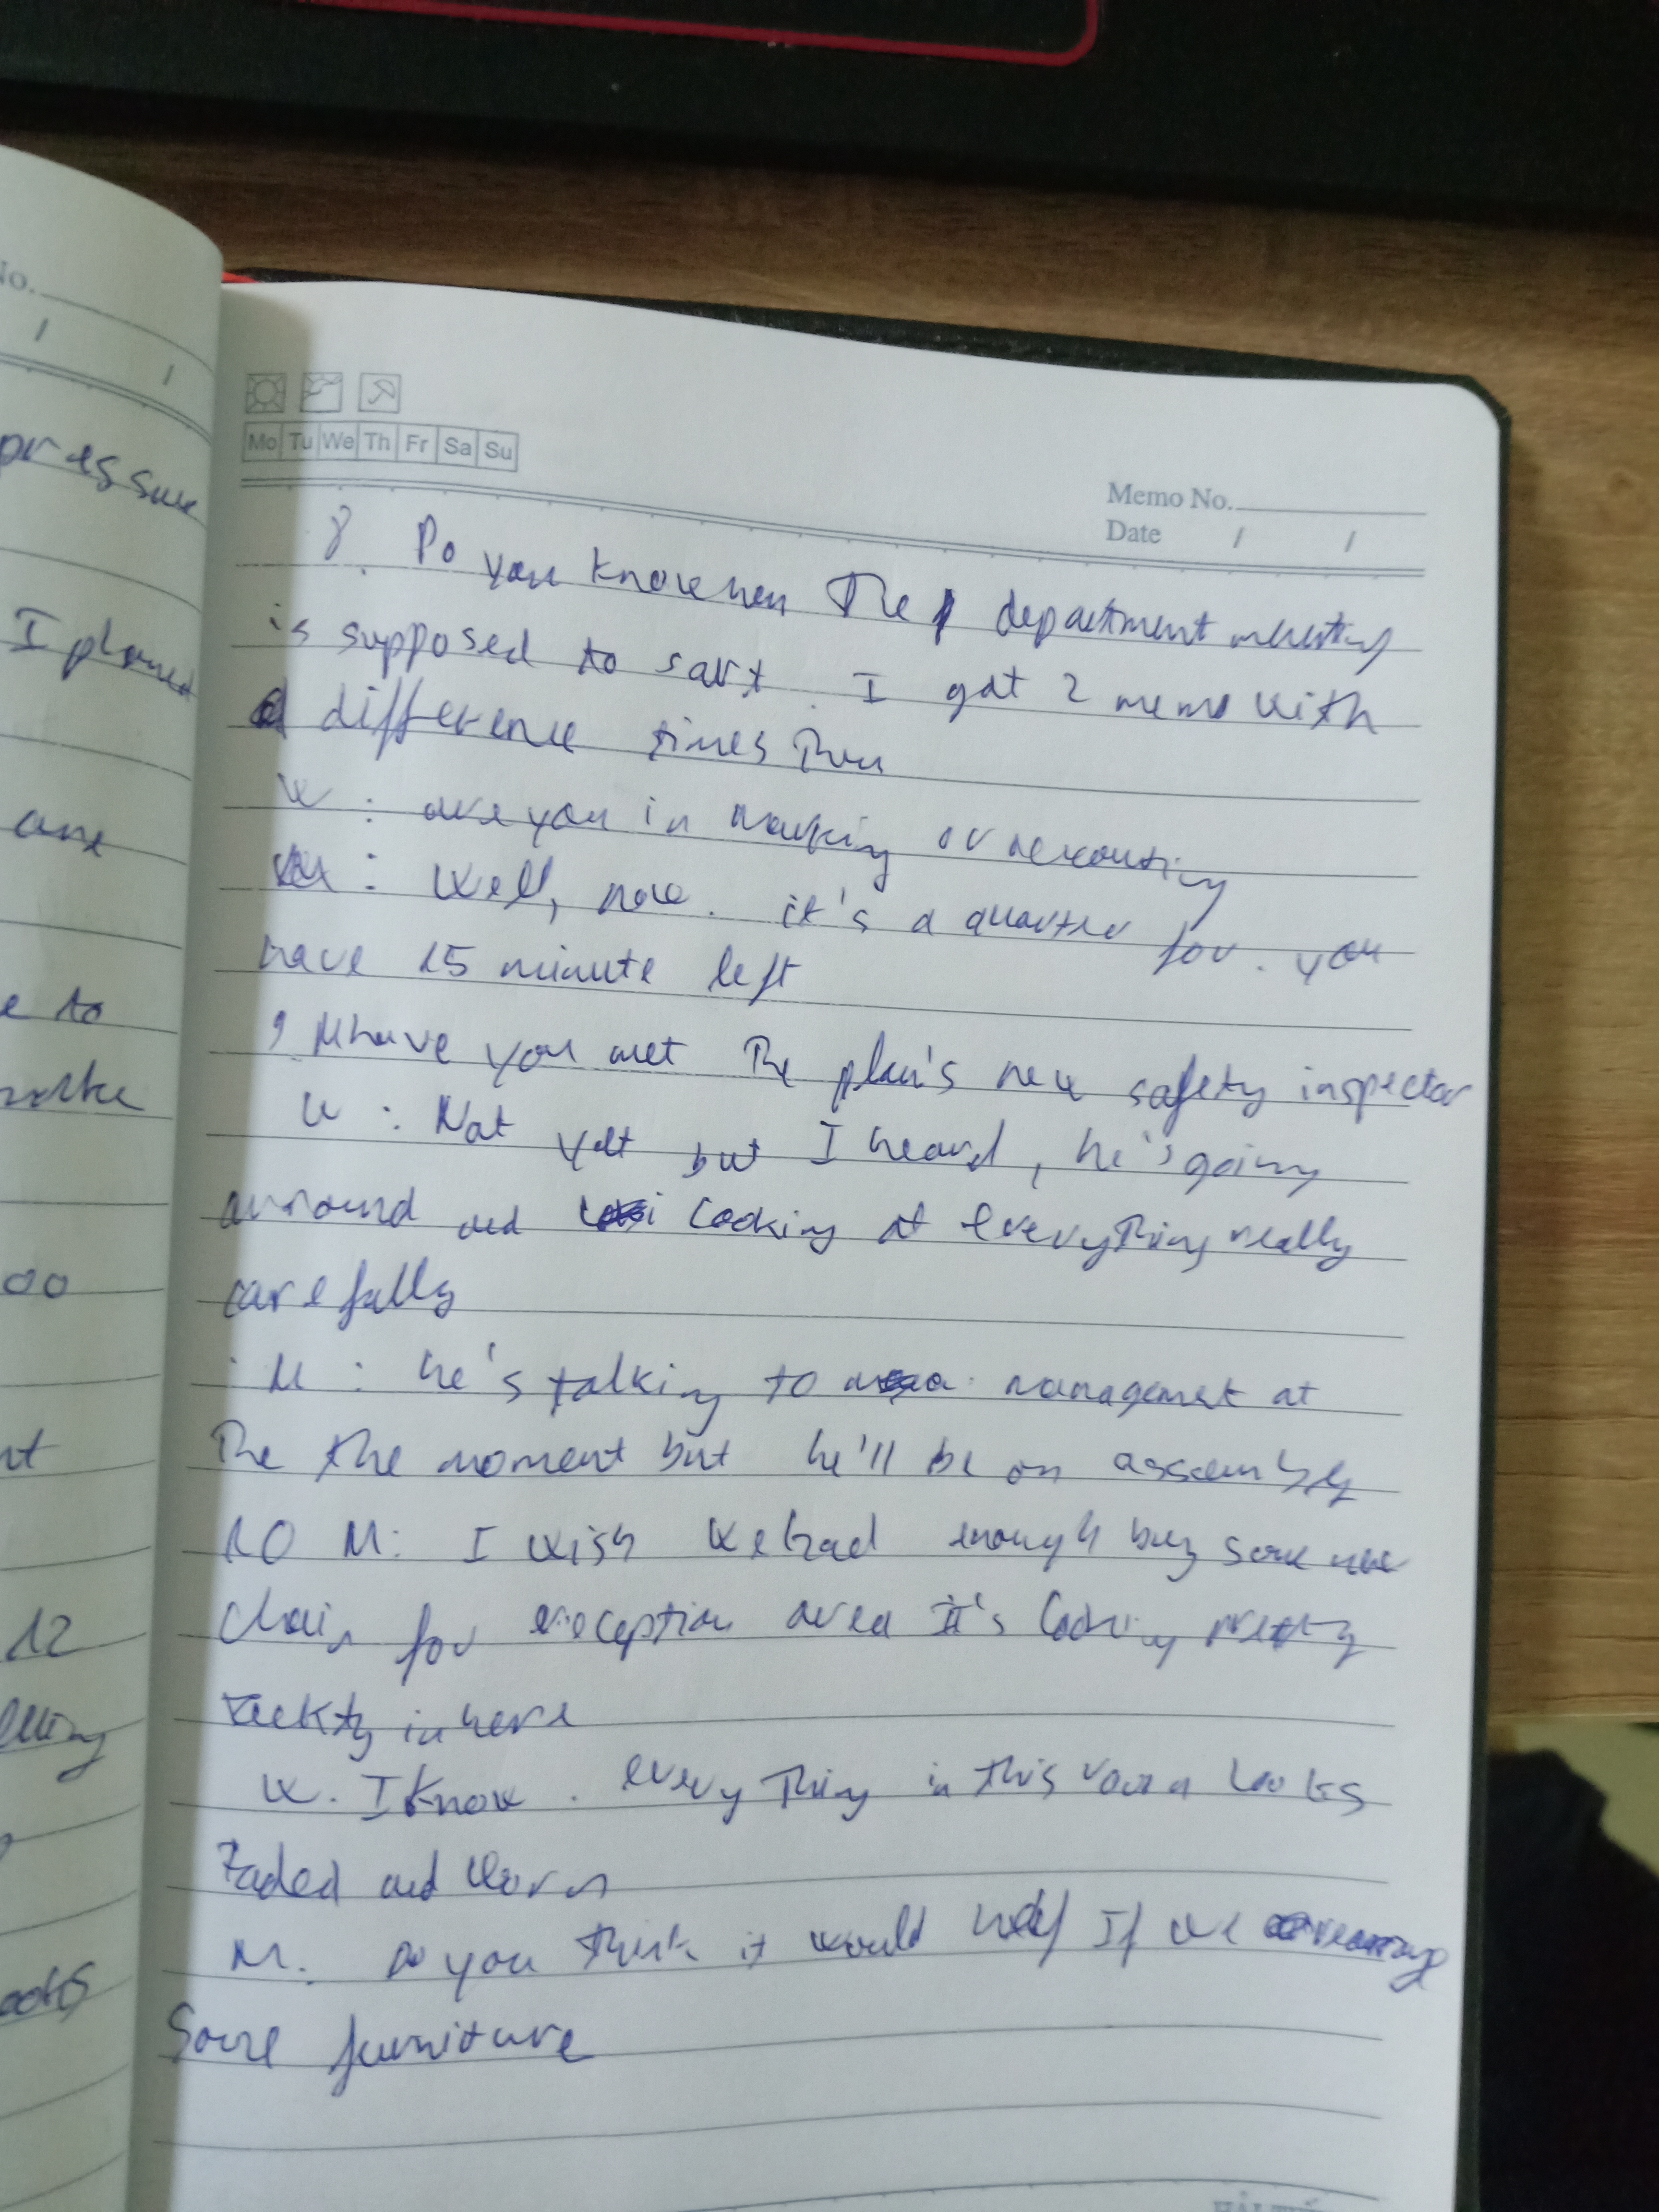 No.
/ /
pressure
I planed
are
e to
00
nt
12
Mo Tu We Th Fr Sa Su
Memo No.
Date / /
8. Do you know when the department meeting
is supposed to sart. I got 2 memo with
difference times then
W: are you in
Well, now. it's a quarter for. you
have 15 minute left
9 M have you met the plan's new safety inspector
W: Not yet but I heard, he's going
arround and looking at everything really
carefully
M: he's talking to management at
The the moment but he'll be on assembly
10 M: I wish we had enough buy some new
chair for reception area It's looking pretty
in here
W. I know. everything in this room looks
Faded and worn
M. Do you think it would help If we
Some furniture